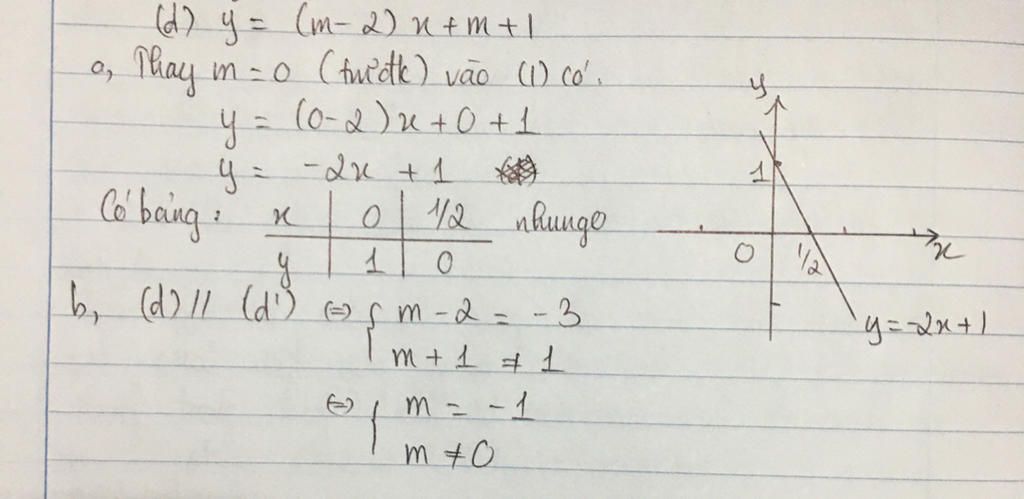 (d) y = (m-2)x+m+1
a, Thay m = 0 (tmđk) vào (1) có.
y = (0-2)x+0+1
y = -2x + 1
Có bảng: x 0 1/2 nhungo
y 1 0
b, (d) // (d') ⇔ { m - 2 = -3
m + 1 ≠ 1
⇔ { m = -1
m ≠ 0
y
1
0 1/2 x
y = -2x+1